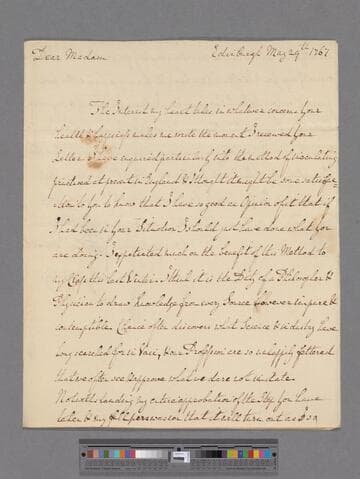 Dear Madam Edinburgh May 29th 1767
The Interest my heart takes in whatever concerns your
Health & happiness makes me wrote the moment I received your
Letter. I have enquired particularly into the method of inoculating
practised at present in England & I thought it might be some satisfac-
tion to you to know that I have so good an Opinion of it that if
I had been in your Situation I should just have done what you
are doing. I expatiated much on the benefit of this Method to
my Class this last Winter. I think it is the Duty of a Philosopher &
Physician to draw knowledge from every Source however impure &
contemptible. Chance often discovers what Science & industry have
long searched for in Vain, & our Profession are so unhappily fettered
that we often see & approve what we dare not imitate.
Notwithstanding my entire approbation of the Step you have
taken & my full perswasion that it will turn out as I so